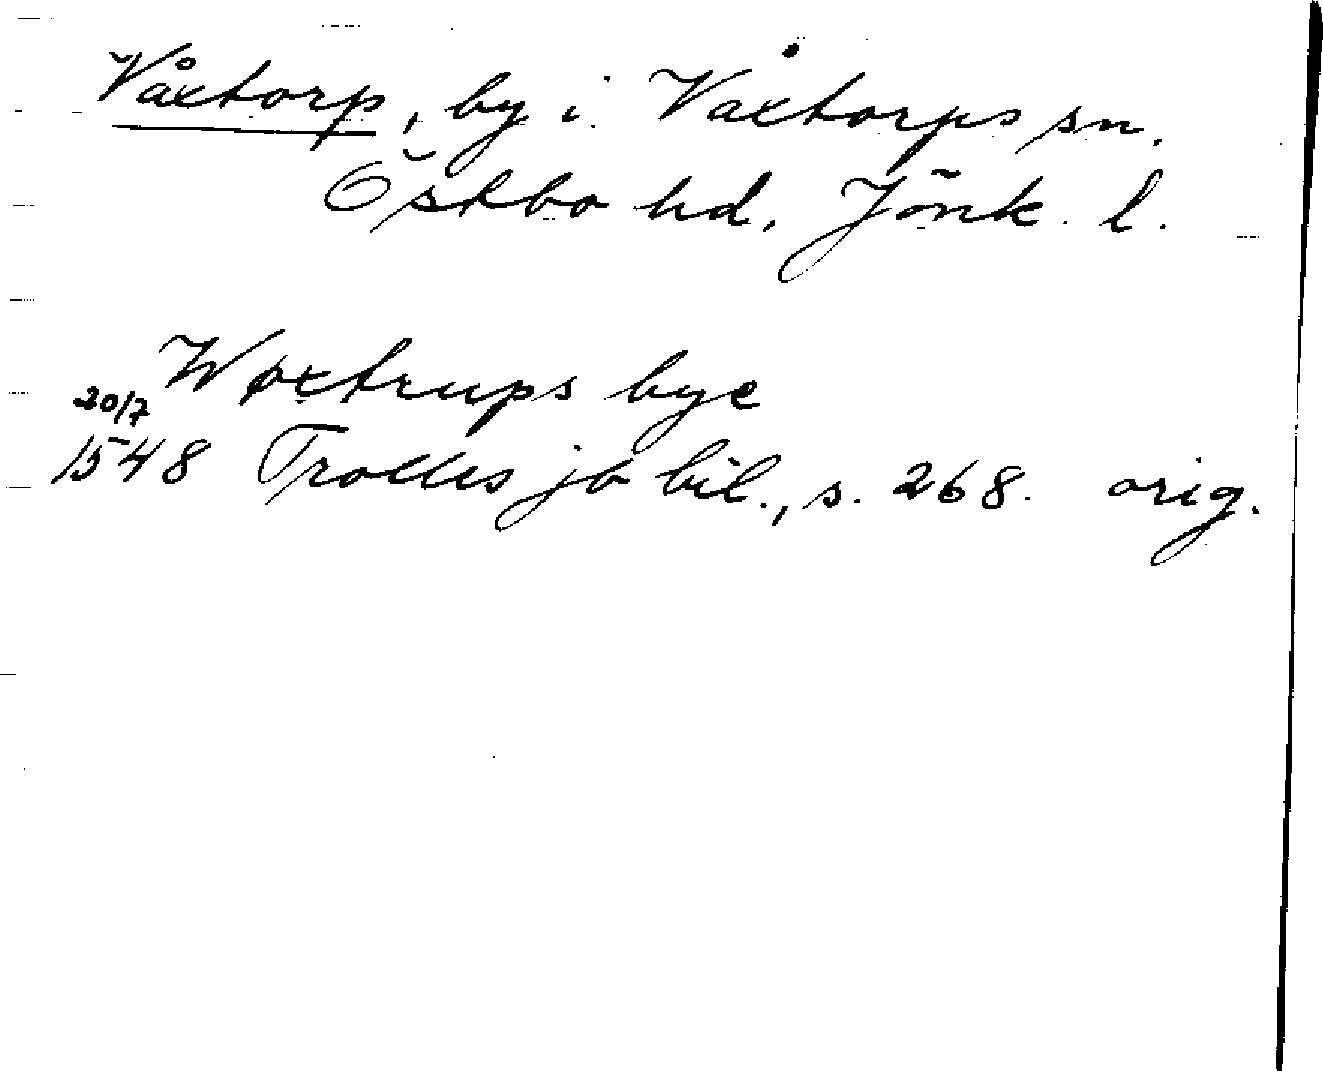 Våxtorp, by i Våxtorps sn.
Östbo hd, Jönk. l.
Wøxtrups bye
20/7
1548 Trolles jb bil., s. 268. orig.